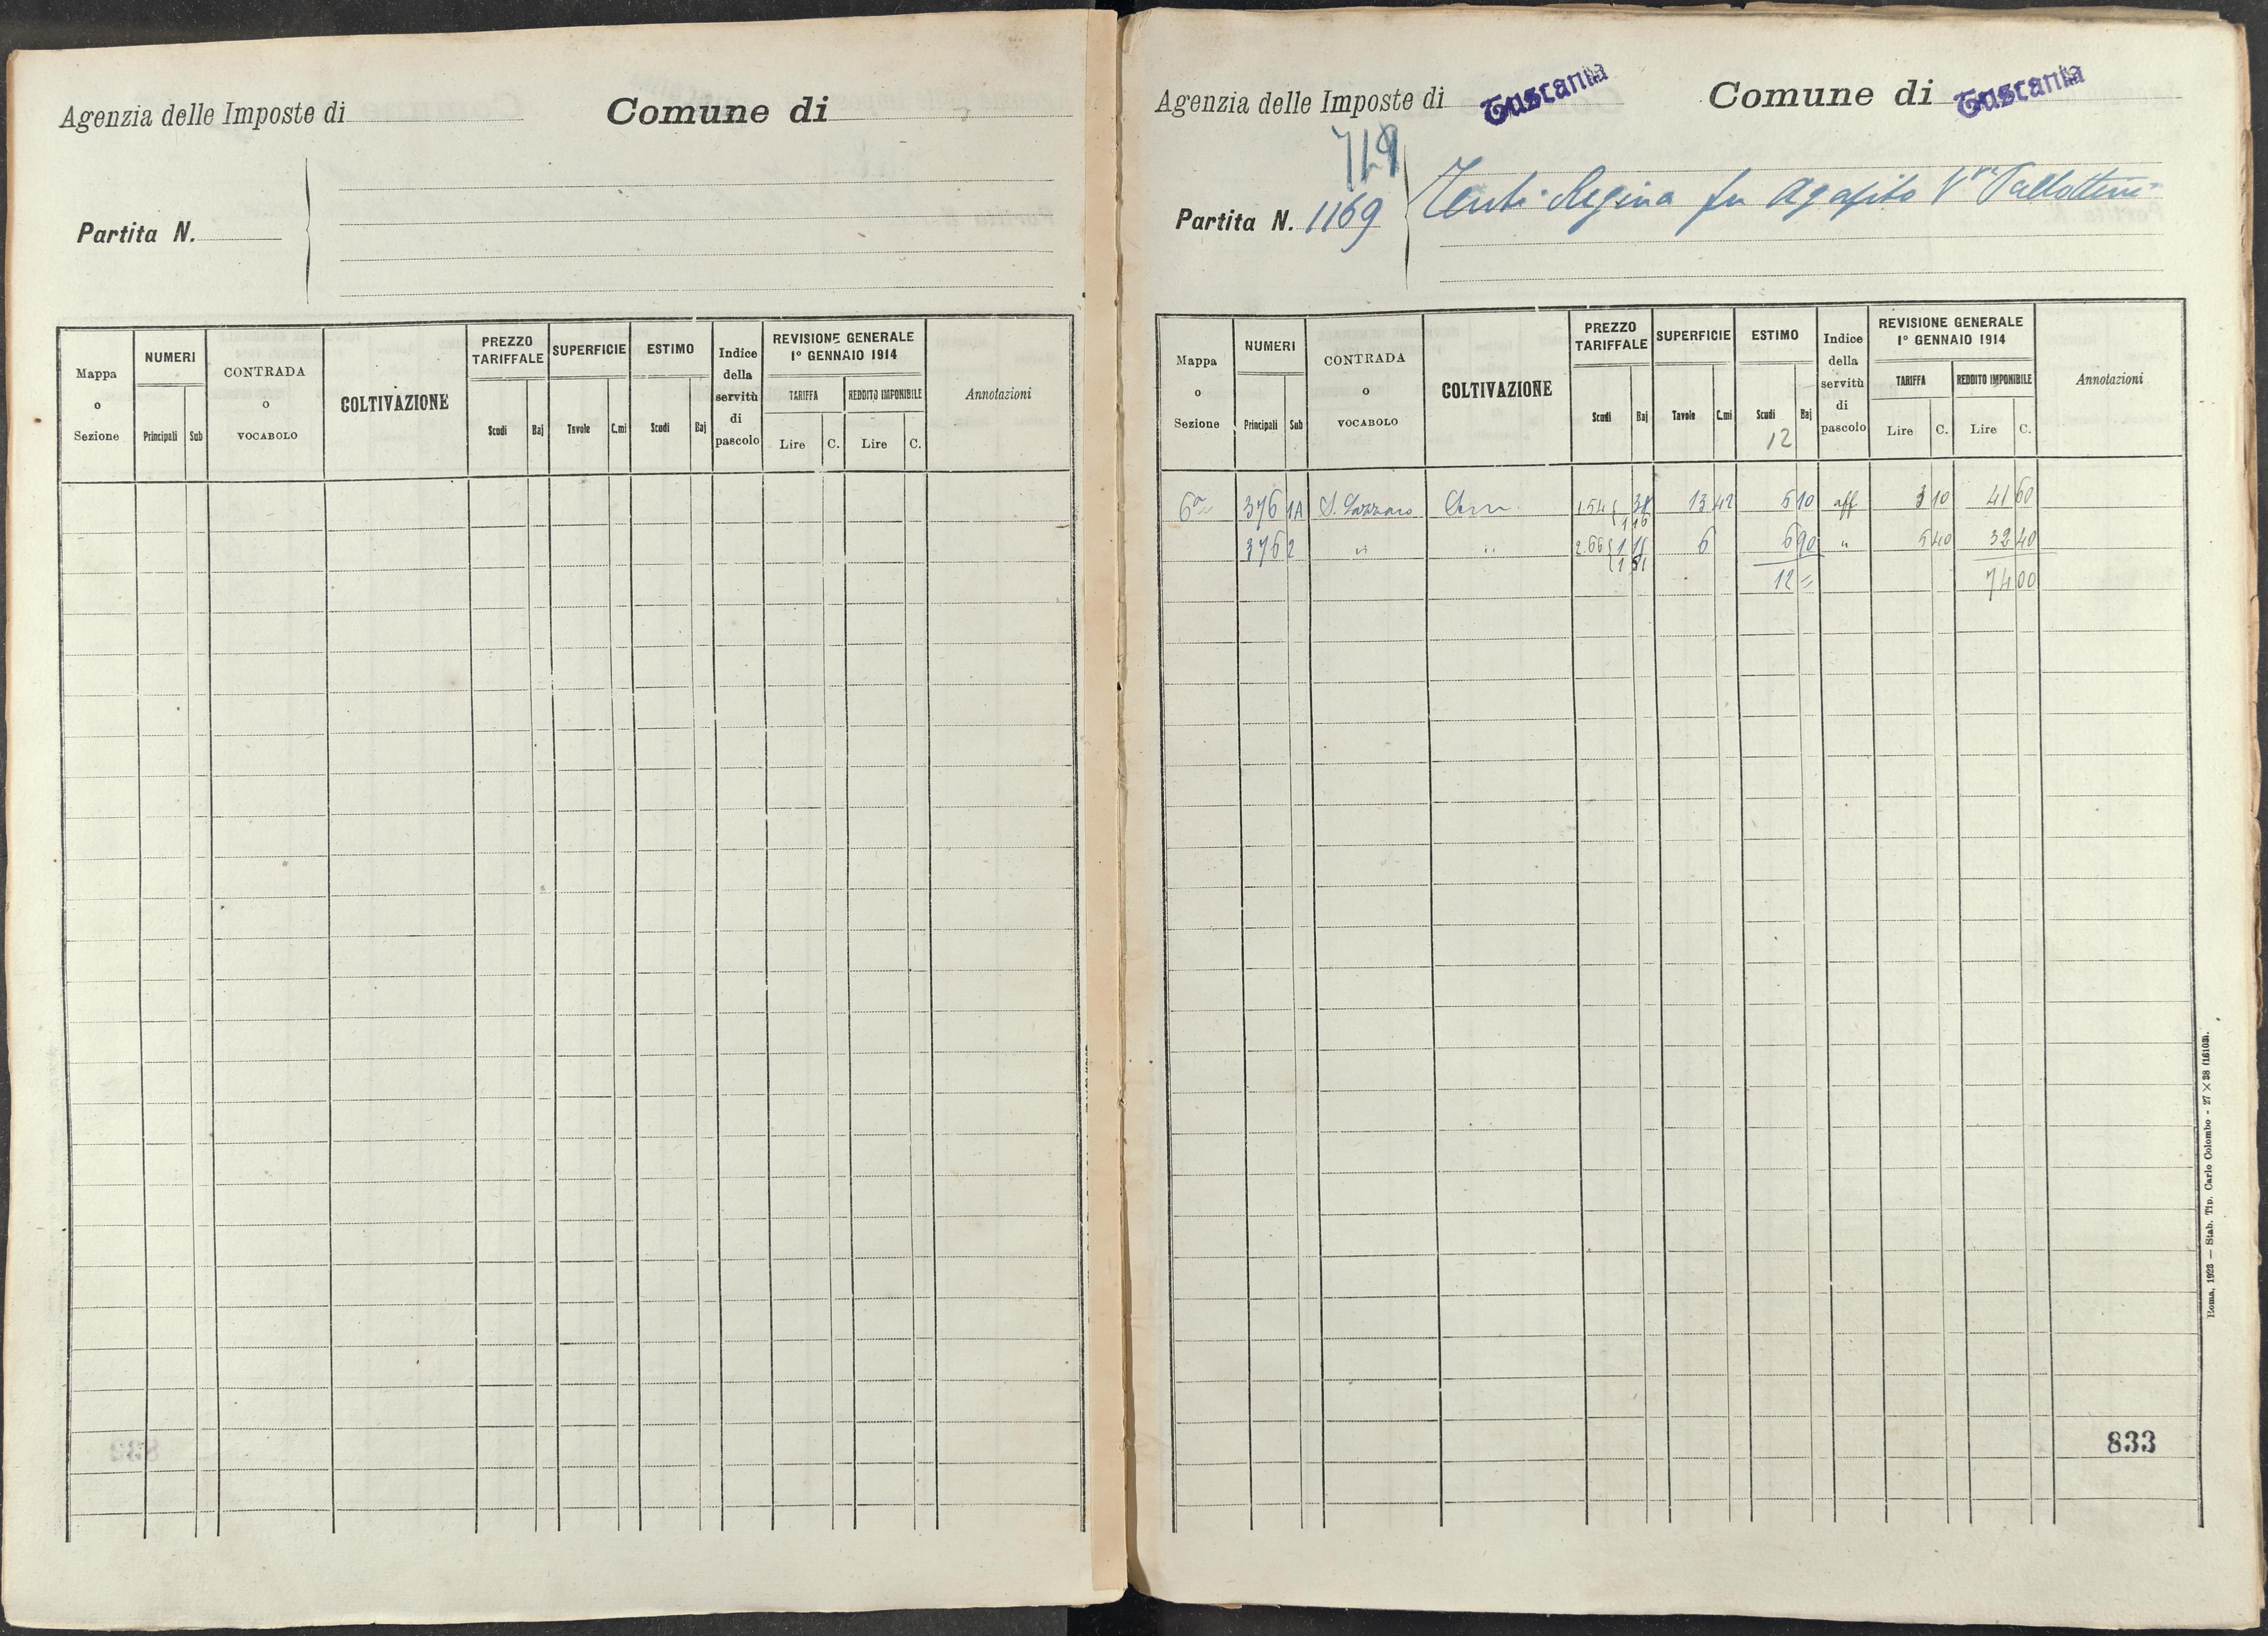 Agenzia delle Imposte di
Comune di
Partita N.
Mappa o Sezione
NUMERI
Principali Sub
CONTRADA o VOCABOLO
COLTIVAZIONE
PREZZO TARIFFALE
Scudi Baj
SUPERFICIE
Tavole C.mi
ESTIMO
Scudi Baj
Indice della servitù di pascolo
REVISIONE GENERALE
1° GENNAIO 1914
TARIFFA
Lire C.
REDDITO IMPONIBILE
Lire C.
Annotazioni
Agenzia delle Imposte di Tuscania
Comune di Tuscania
719
Partita N. 1169
Tenti Regina fu Agapito Vva Pallottini
Mappa o Sezione
NUMERI
Principali Sub
CONTRADA o VOCABOLO
COLTIVAZIONE
PREZZO TARIFFALE
Scudi Baj
SUPERFICIE
Tavole C.mi
ESTIMO
Scudi Baj
12
Indice della servitù di pascolo
REVISIONE GENERALE
1° GENNAIO 1914
TARIFFA
Lire C.
REDDITO IMPONIBILE
Lire C.
Annotazioni
6a 376 1A S. Lazzaro 1.54 38 13 42 5 10 aff 3 10 41 60
1 16
376 2 " " 2.66 1 15 6 6 90 " 5 40 32 40
1 51
12 = 74 00
833
Roma, 1923 — Stab. Tip. Carlo Colombo - 27 × 38 (16103).